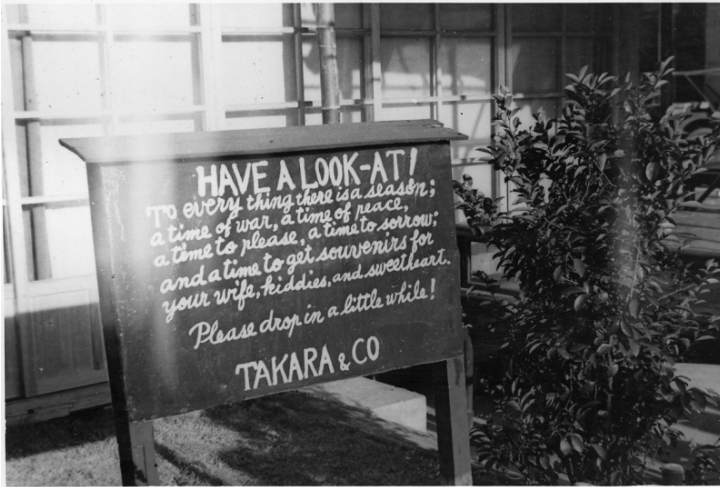 HAVE A LOOK-AT!
To every thing there is a season;
a time of war, a time of peace,
a time to please, a time to sorrow;
and a time to get souvenirs for
your wife, kiddies, and sweetheart.
Please drop in a little while!
TAKARA & CO